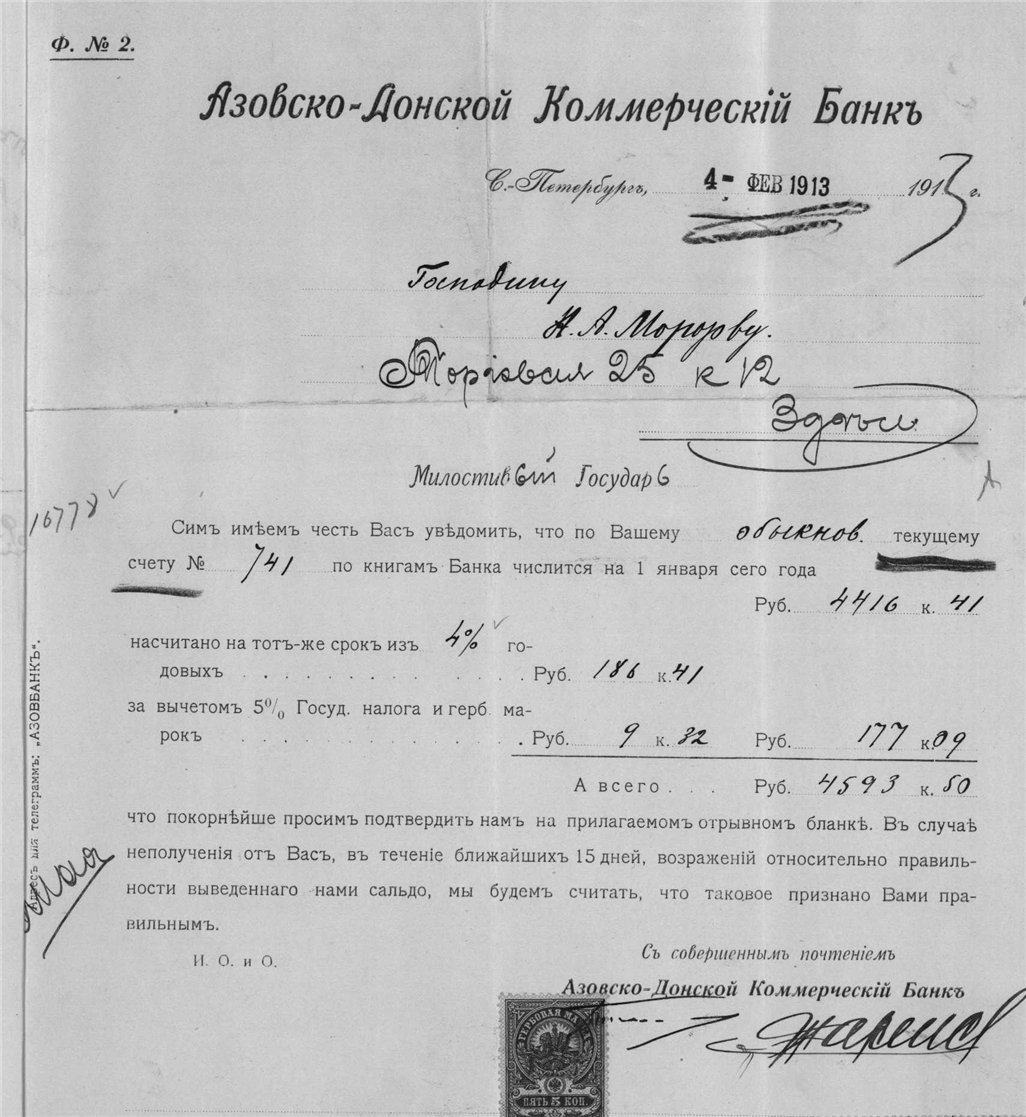 Ф. № 2.
Азовско-Донской Коммерческій Банкъ
С.-Петербургъ, 4- ФЕВ 1913 1913 г.
Господину
Н. А. Морозову.
Торговая 25 к 12
Здѣсь.
Милостивый Государь
16778
Симъ имѣемъ честь Васъ увѣдомить, что по Вашему обыкнов. текущему
счету № 741 по книгамъ Банка числится на 1 января сего года
Руб. 4416 к. 41
насчитано на тотъ-же срокъ изъ 4% го-
довыхъ . . . . . . . . . . . Руб. 186 к. 41
за вычетомъ 5% Госуд. налога и герб. ма-
рокъ . . . . . . . . . . . Руб. 9 к. 32 Руб. 177 к. 09
А всего . . . Руб. 4593 к. 50
что покорнѣйше просимъ подтвердить намъ на прилагаемомъ отрывномъ бланкѣ. Въ случаѣ
неполученія отъ Васъ, въ теченіе ближайшихъ 15 дней, возраженій относительно правиль-
ности выведеннаго нами сальдо, мы будемъ считать, что таковое признано Вами пра-
вильнымъ.
И. О. и О.
Съ совершеннымъ почтеніемъ
Азовско-Донской Коммерческій Банкъ
ГЕРБОВАЯ МАРКА
ПЯТЬ 5 КОП.
Адресъ для телеграммъ: „АЗОВБАНКЪ".